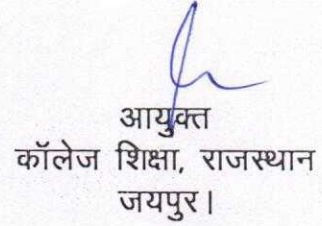 आयुक्त
कॉलेज शिक्षा, राजस्थान
जयपुर।